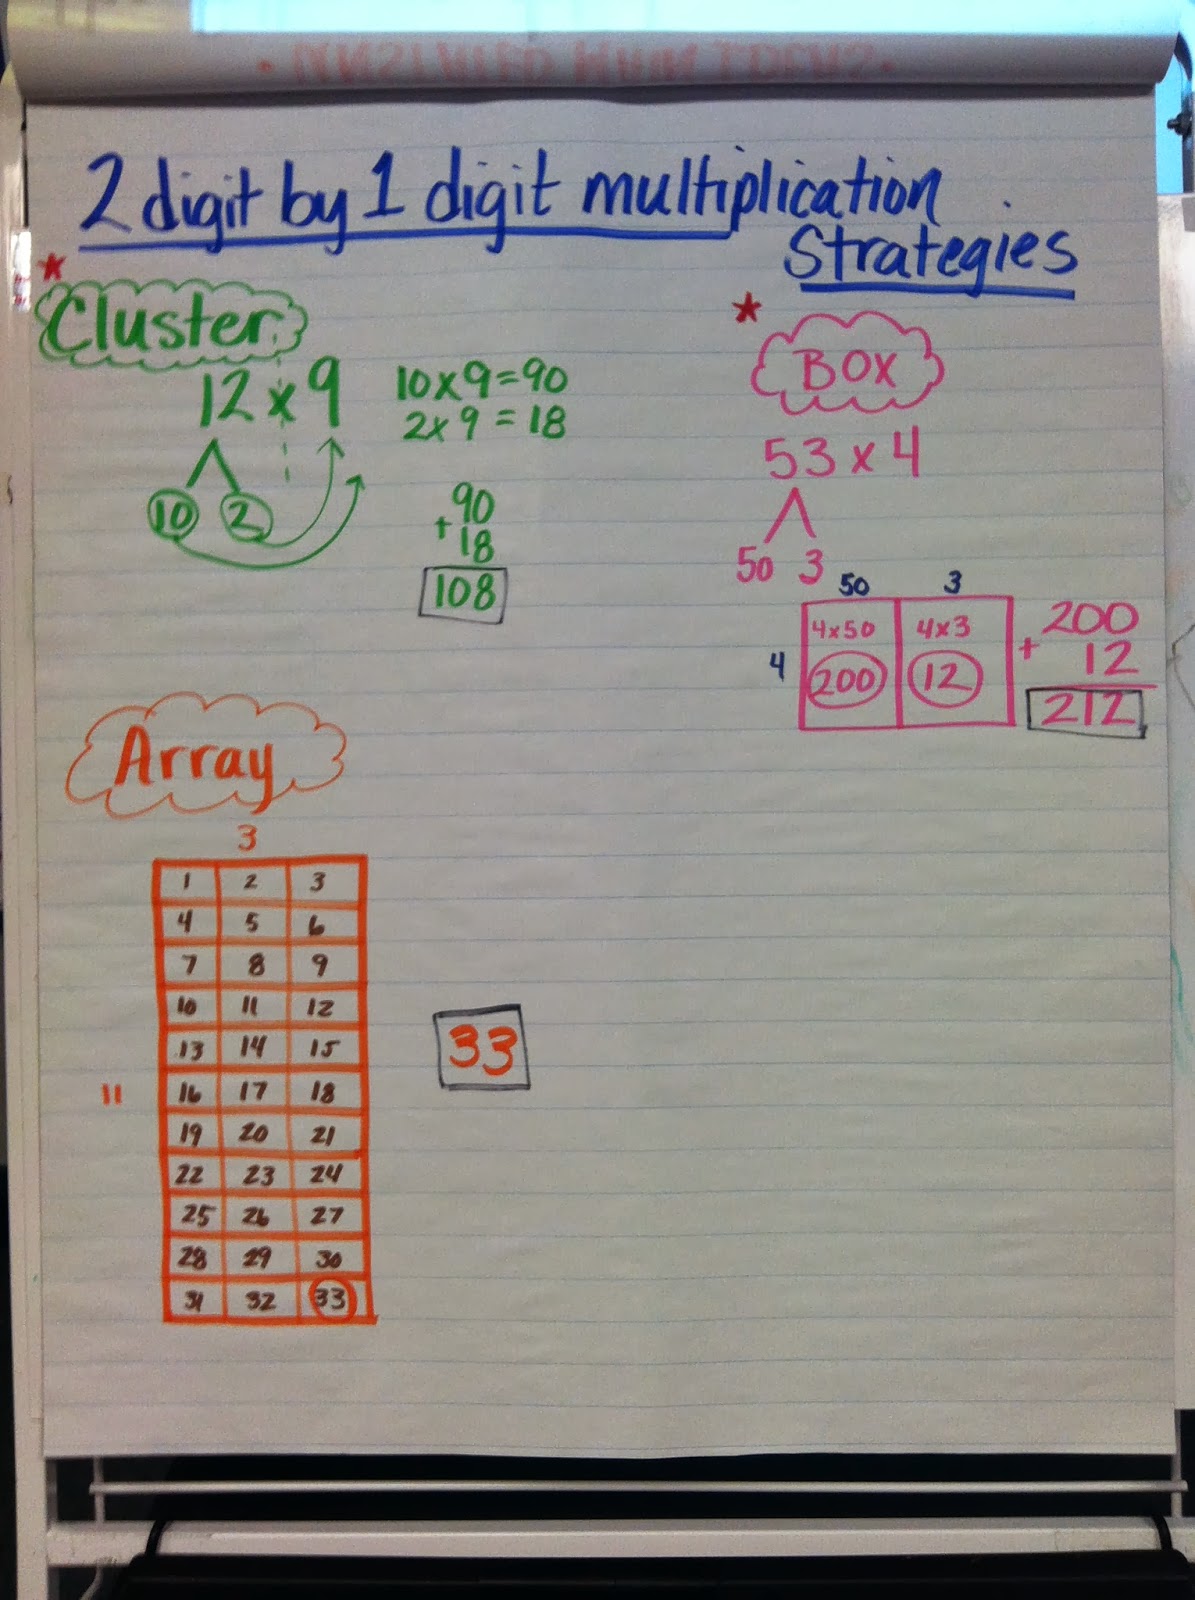 2 digit by 1 digit multiplication
Strategies
Cluster
12 x 9
10 2
10 x 9 = 90
2 x 9 = 18
90
+ 18
108
BOX
53 x 4
50 3
50 3
4 x 50 4 x 3
4
200 12
200
+ 12
212
Array
3
11
1 2 3
4 5 6
7 8 9
10 11 12
13 14 15
16 17 18
19 20 21
22 23 24
25 26 27
28 29 30
31 32 33
33